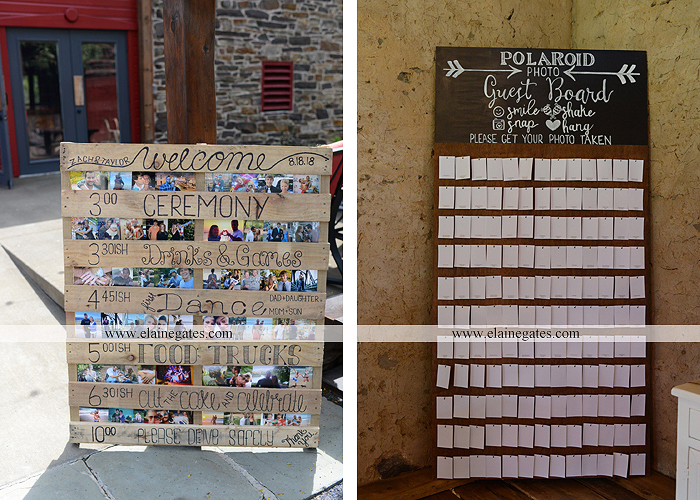 ZACH & TAYLOR welcome 8.18.18
3:00 CEREMONY
3:30ISH Drinks & Games
4:45ISH first Dance DAD + DAUGHTER
MOM + SON
www.elainegates.com
5:00ISH FOOD TRUCKS
6:30ISH cut THE cake AND celebrate
10:00 PLEASE DRIVE SAFELY Thank You
POLAROID
PHOTO
Guest Board
smile shake
snap hang
PLEASE GET YOUR PHOTO TAKEN
www.elainegates.com